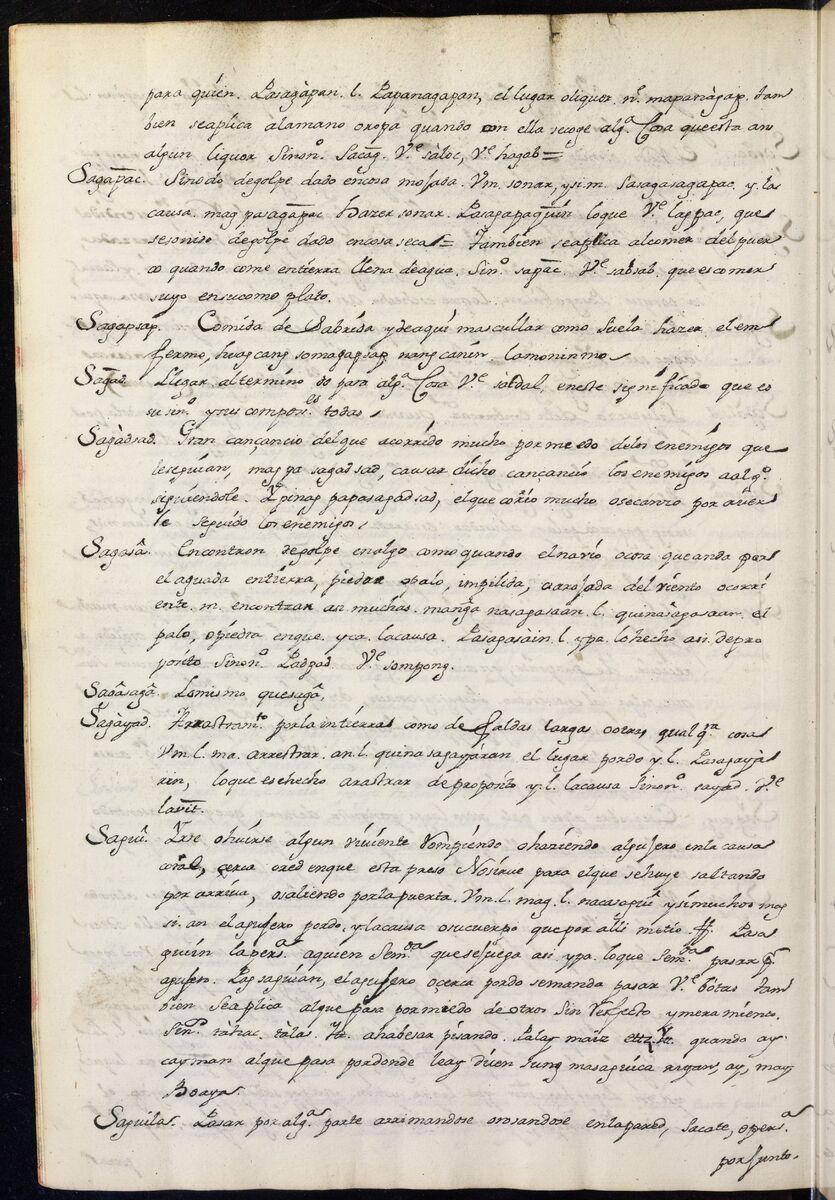 para quien. Pasagàpan. l. Papanagapan, el lugar oliquor. n.º mapanàgap. tam
bien seaplica alamano oropa quando con ella secoge alg.ª Cosa queesta en
algun liquor Sinon.º Sacag. V.e sàloc, V.e hagab=
Sagapac. Sinodo degolpe dado encosa mojada. Vm. sonar, ysi.m. Sasagasagapac. y. las
causa. mag pasagapac hazer sonar. Pasapapaquin loque V.e lagpac, que
sesonido degolpe dado encosa seca= tambien seaplica alcomer del puer
co quando come entierra llena deagua. Sin.º sapac. V.e sabsab. que es comer
suyo ensucomo plato.
Sagapsap. Comida de Sabrida ydeaqui mascullar como suele hazer el em
fermo, huag cang somagapsap nang canin. lamoninmo
Sagad. Llegar altermino do para alg.ª Cosa V.e saldal, eneste significado que es
su sin.º ysus compon.es todas,
Sagàdsad. Gran cançancio delque acorrido mucho pormiedo delos enemigos que
leseguian, mag pa sagadsad, causar dicho cançancio los enemigos aalg.º
siguiendole. Pinag papasagadsad, elque corrio mucho osecanzo por aver
le seguido los enemigos,
Sagasâ. Encontron degolpe enalgo como quando elnavio ocosa queanda por
el aguada entierra, piedra opalo, impelida, oarrojada del viento ocorri
ente. m. encontrar asi muchas. manga nasagasaan. l. quinasagasaan. el
palo, opiedra enque. yca. lacausa. Pasagasàin. l. ypa. lohecho asi. depro
posito Sinon.º Padpad. V.e sompong.
Sagâsagâ. Lomismo quesagâ,
Sagàyad. Arrastram.to porla intierra como de faldas largas ootra qualq.ª cosa
Vm. l. ma. arrestrar. an. l. quina sagayáran el lugar pordo y. l. Pasagayà
rin, loque es hecho arastrar deproposito y. l. lacausa Sinon.º sayad. V.e
lavit.
Saguî. Irse ohuirse algun viviente rompiendo ohaziendo algujero enla causa
coral, çerca ored enque esta preso Nosirve para elque sehuye saltando
por arriva, osaliendo porla puerta. Vm. l. mag. l. nacasaguî ysimuchos mag
si. an el agujero pordo, ylacausa osucuerpo que por alli metio. It. Pasa
guiin lapers.ª aquien Sem.da quesefuega asi ypa. loque Sem.da pasar p.r
agujero. Pagsaguian, el agujero oçerca pordo semanda pasar V.e botas tam
bien Seaplica alque pasa pormiedo deotros sin respecto ymeramiento.
Sin.º tahac. tàlas. It. ahabesar pisando. Palay maiz etc.ª It. quando ay
cayman alque pasa pordonde leay diien Iung masaguica riyan, ay, may
Boaya.
Saguilas. Pasar por alg.ª parte arrimandose orosandose enlapared, Sacate, opers.ª
por Junto.